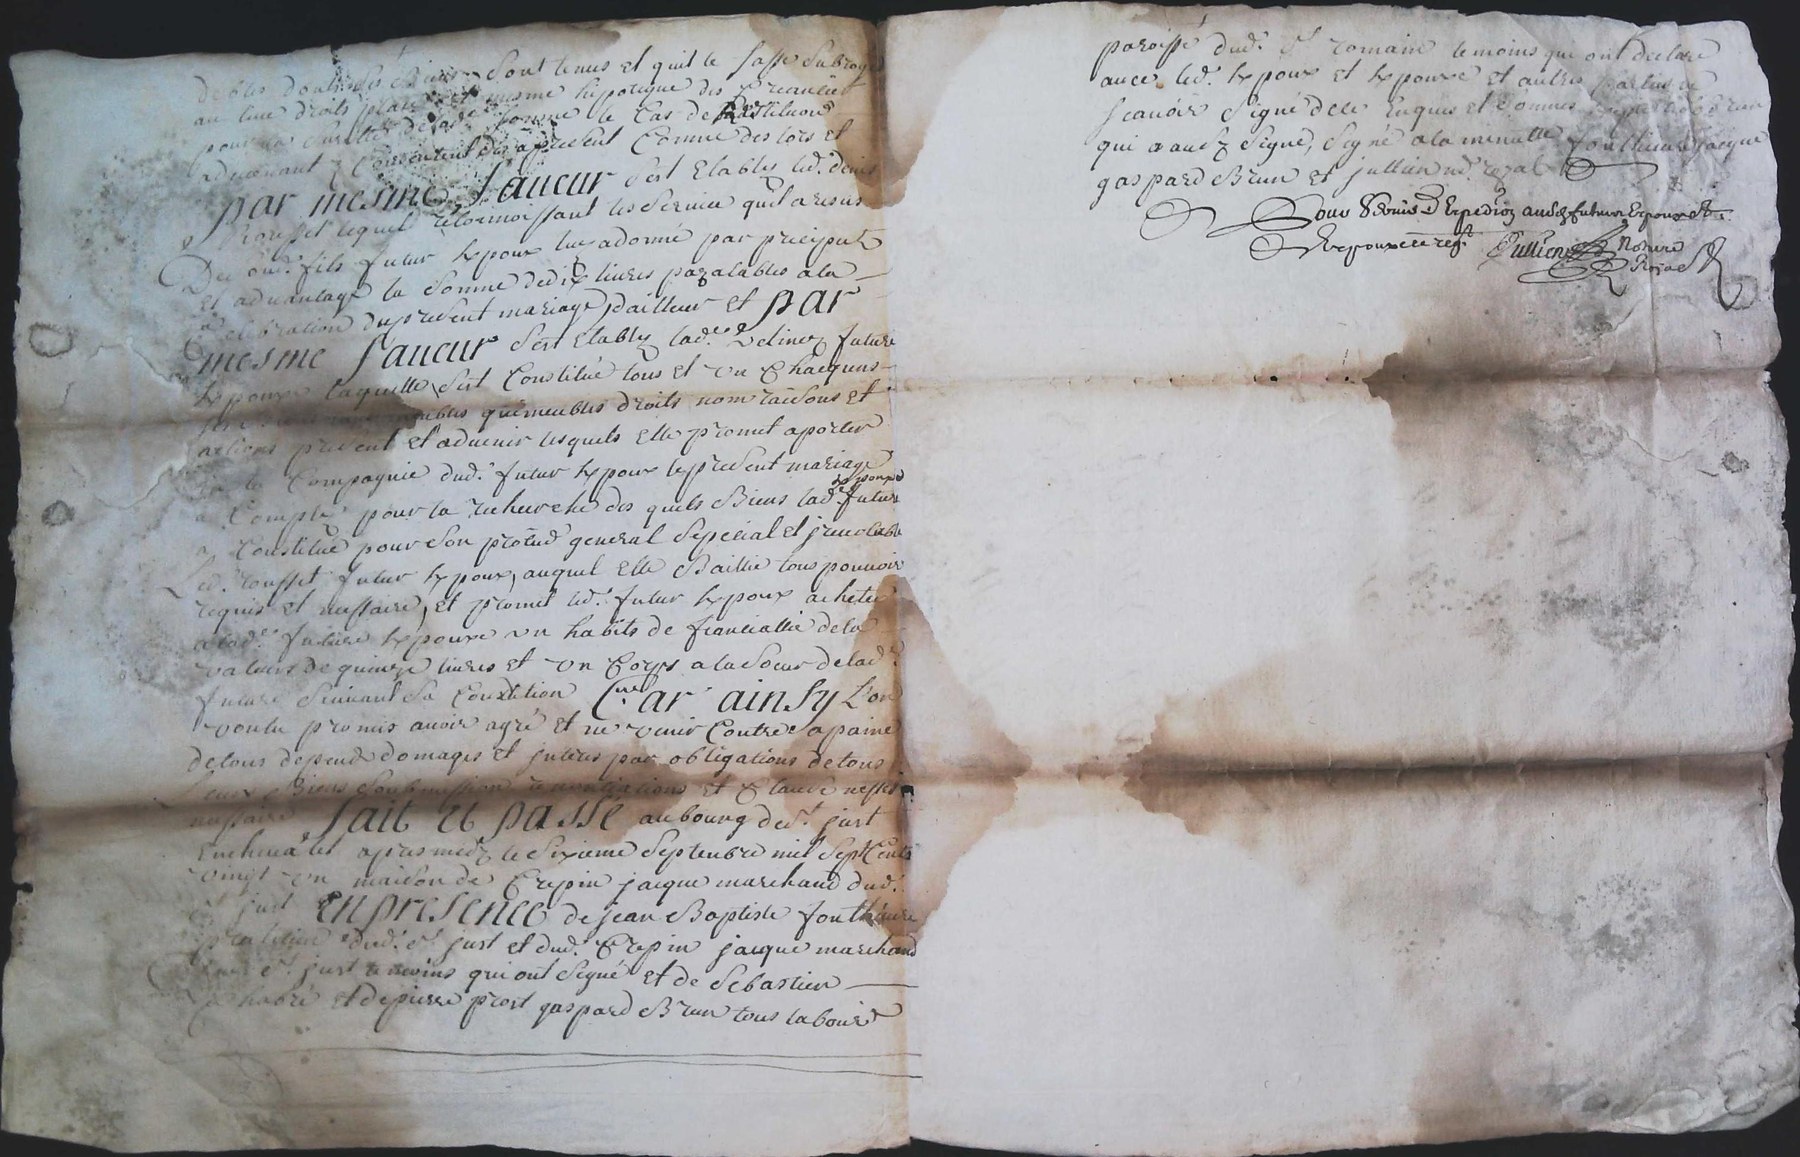 debtes dont ses Biens sont tenus et quil se fasse subroger
au lieu droits place et mesme hipoteque des Creanciers
pour la surette de lad.e somme le Cas de Restitution
aduenant Consentent des apresent Comme des lors et
par mesme faueur s'est Etably led. denis
Rousset lequel reconnoissant les seruices quil a resus
Dud. son fils futur Expoux luy a donné par preciput
et aduantage la somme de dix liures payalables a la
Celebration du present mariage, d'ailleur et par
mesme faueur s'est Etablye lad.e future
Expouze laquelle s'est Constitué tous et un Chacquns
ses Biens meubles quimeubles droits nom raisons et
actions present et aduenir lesquels elle promet aporter
en la Compagnie dud. futur Expoux le present mariage
a Comply pour la recherche des quels Biens lad.e future expouze
a Constitué pour son procud general sepecial et jreuocable
Led. rousset futur Expoux, auquel Elle Baillie tous pouuoir
requis et nessaire, et promet led. futur Expoux acheter
a lad.e future Expouze un habits de fiancallie de la
valeur de quinze liures et un Corps a la soeur de lad.e
future suiuant sa Condition Car ainsy L'on
voulu promis auoir agré et ne venir Contre a paine
de tous depends domages et jnteres par obligations de tous
Leurs Biens soubmission renontiations et Clause
nessaire fait et passé au bourg de S.t just
Encheualet apres midy le sixieme septenbre mil septCents
vingt un maison de Crepin jacque marchand dud.
S.t just En presence de jean Baptiste fonthieure
praticien dud. S.t just et dud. Crepin jacque marchand
dud. S.t just temoins qui ont signé et de sebastien
Chabré et de pierre prost gaspard Brun tous labour.r
paroisse dud. S.t romain temoins qui ont declaré
auec led. Expoux et Expouze et autres parties ne
scauoir signé de ce Enquis et sommes Exepté led. Brun
qui a aussy signé, signé a la minutte fonthieure jacque
gaspard Brun et jullien no.re royal
Pour seconde Expedion ausd. futurs Expoux et
Expouze
Jullien Notaire
Royal